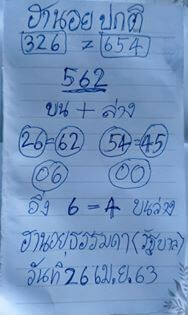 ฮานอย ปกติ
326 = 654
562
บน + ล่าง
26=62 54=45
06 00
วิ่ง 6 = 4 บนล่าง
ฮานอยธรรมดา (รัฐบาล)
วันที่ 26 เม.ย. 63